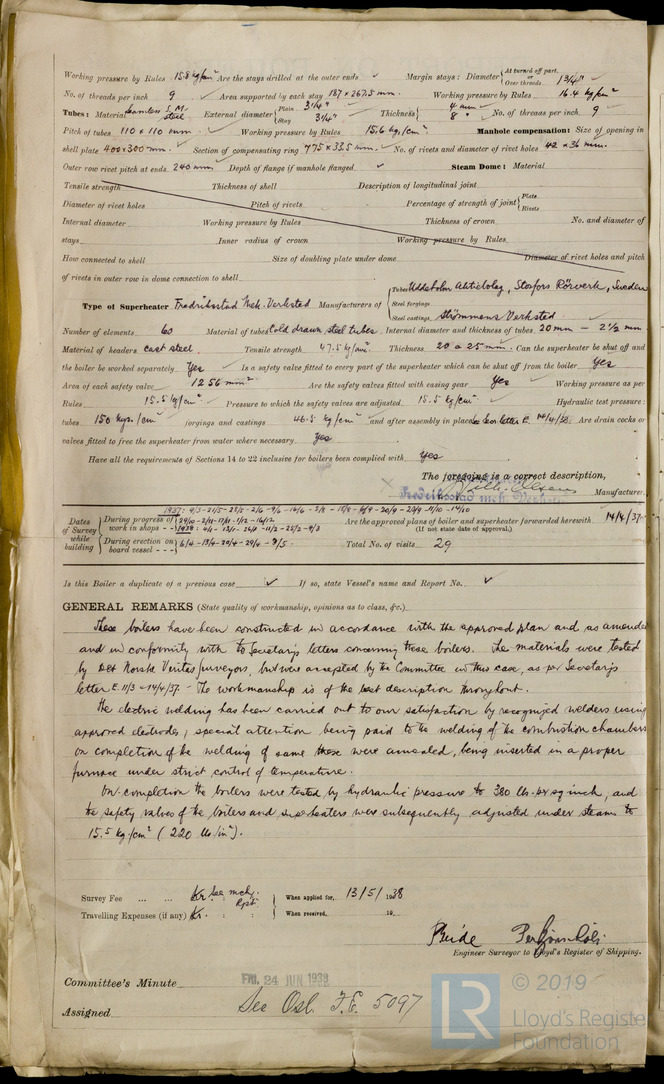 Working pressure by Rules 15.8 kg/cm² Are the stays drilled at the outer ends ✓ Margin stays: Diameter { At turned off part, or Over threads 1 3/4" ✓
No. of threads per inch 9 ✓ Area supported by each stay 187 × 267.5 mm. Working pressure by Rules 16.4 kg/cm²
Tubes: Material Seamless S.M. steel External diameter { Plain 3 1/4" Stay 3 1/4" Thickness { 4 mm 8 " No. of threads per inch 9 ✓
Pitch of tubes 110 × 110 mm. Working pressure by Rules 15.6 kg/cm² Manhole compensation: Size of opening in
shell plate 400 × 300 mm. Section of compensating ring 775 × 33.5 mm. No. of rivets and diameter of rivet holes 42 × 36 mm.
Outer row rivet pitch at ends 240 mm Depth of flange if manhole flanged ✓ Steam Dome: Material
Tensile strength Thickness of shell Description of longitudinal joint
Diameter of rivet holes Pitch of rivets Percentage of strength of joint { Plate Rivets
Internal diameter Working pressure by Rules Thickness of crown No. and diameter of
stays Inner radius of crown Working pressure by Rules
How connected to shell Size of doubling plate under dome Diameter of rivet holes and pitch
of rivets in outer row in dome connection to shell
Type of Superheater Fredriksstad Mek. Verksted Manufacturers of { Tubes Uddeholm Aktiebolag, Storfors Rörverk, Sweden
Steel forgings
Steel castings Strømmens Verksted
Number of elements 60 Material of tubes Cold drawn steel tubes Internal diameter and thickness of tubes 20 mm – 2 1/2 mm
Material of headers cast steel Tensile strength 47.5 kg/mm² Thickness 20 a 25 mm. Can the superheater be shut off and
the boiler be worked separately Yes Is a safety valve fitted to every part of the superheater which can be shut off from the boiler Yes
Area of each safety valve 1256 mm² Are the safety valves fitted with easing gear Yes Working pressure as per
Rules 15.5 kg/cm² Pressure to which the safety valves are adjusted 15.5 kg/cm² Hydraulic test pressure:
tubes 150 kgs./cm² forgings and castings 46.5 kg/cm² and after assembly in place letter E. 14/4/38. Are drain cocks or
valves fitted to free the superheater from water where necessary Yes
Have all the requirements of Sections 14 to 22 inclusive for boilers been complied with Yes
The foregoing is a correct description,
Fredrikstad mek. Verksted Manufacturer.
Dates of Survey while building { During progress of work in shops - -
During erection on board vessel - - -
Are the approved plans of boiler and superheater forwarded herewith 14/4/37.
(If not state date of approval.)
Total No. of visits 29
Is this Boiler a duplicate of a previous case ✓ If so, state Vessel's name and Report No. ✓
GENERAL REMARKS (State quality of workmanship, opinions as to class, &c.)
These boilers have been constructed in accordance with the approved plan and as amended
and in conformity with to Secretary's letters concerning these boilers. The materials were tested
by Det Norske Veritas surveyors, but were accepted by the Committee in this case, as per Secretary's
letter E. 11/3 – 14/4/37. – The workmanship is of the best description throughout.
The electric welding has been carried out to our satisfaction by recognized welders using
approved electrodes, special attention being paid to the welding of the combustion chambers
on completion of the welding of same these were annealed, being inserted in a proper
furnace under strict control of temperature.
On completion the boilers were tested by hydraulic pressure to 380 lbs. per sq inch, and
the safety valves of the boilers and superheaters were subsequently adjusted under steam to
15.5 kg/cm² (220 lbs/in²).
Survey Fee ... ... Kr. See mchy. Rpt. When applied for, 13/5/1938
Travelling Expenses (if any) Kr. : : When received, 19
Engineer Surveyor to Lloyd's Register of Shipping.
Committee's Minute FRI. 24 JUN 1938
Assigned See Osl. F.E. 5097
LR © 2019
Lloyd's Register
Foundation